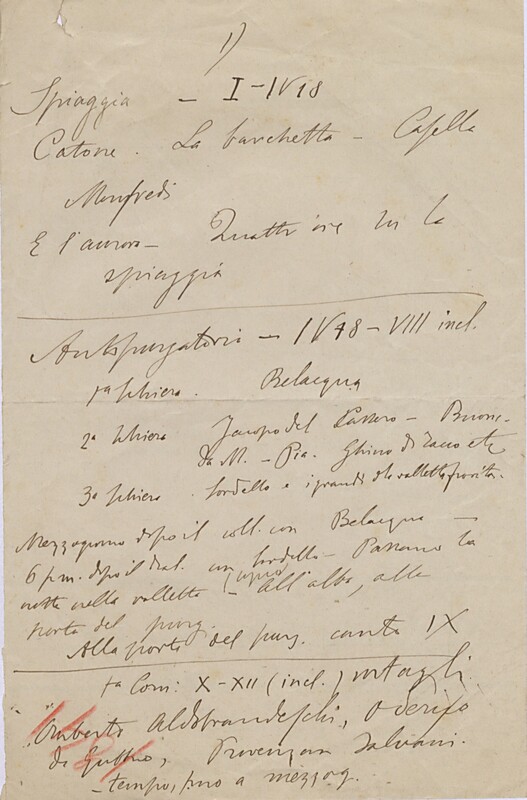 1)
Spiaggia — I-IV 18
Catone. La barchetta — Casella
Manfredi
E l'aurora — Quattr'ore su la
spiaggia
Antipurgatorio — IV 48 - VIII incl.
1ª schiera. Belacqua
2ª schiera Jacopo del Cassero — Buonc.
da M. — Pia. Ghino di Tacco etc
3ª schiera. Sordello e i grandi della valletta fiorita.
Mezzogiorno dopo il coll. con Belacqua —
6 p.m. dopo il dial. con Sordello — Passano la
notte nella valletta (sogno) — all'alba, alla
porta del purg.
Alla porta del purg. canto IX
1ª Corn: X-XII (incl.) intagli
Omberto Aldobrandeschi, Oderiso
da Gubbio, Provenzan Salvani.
— tempo, fino a mezzog.